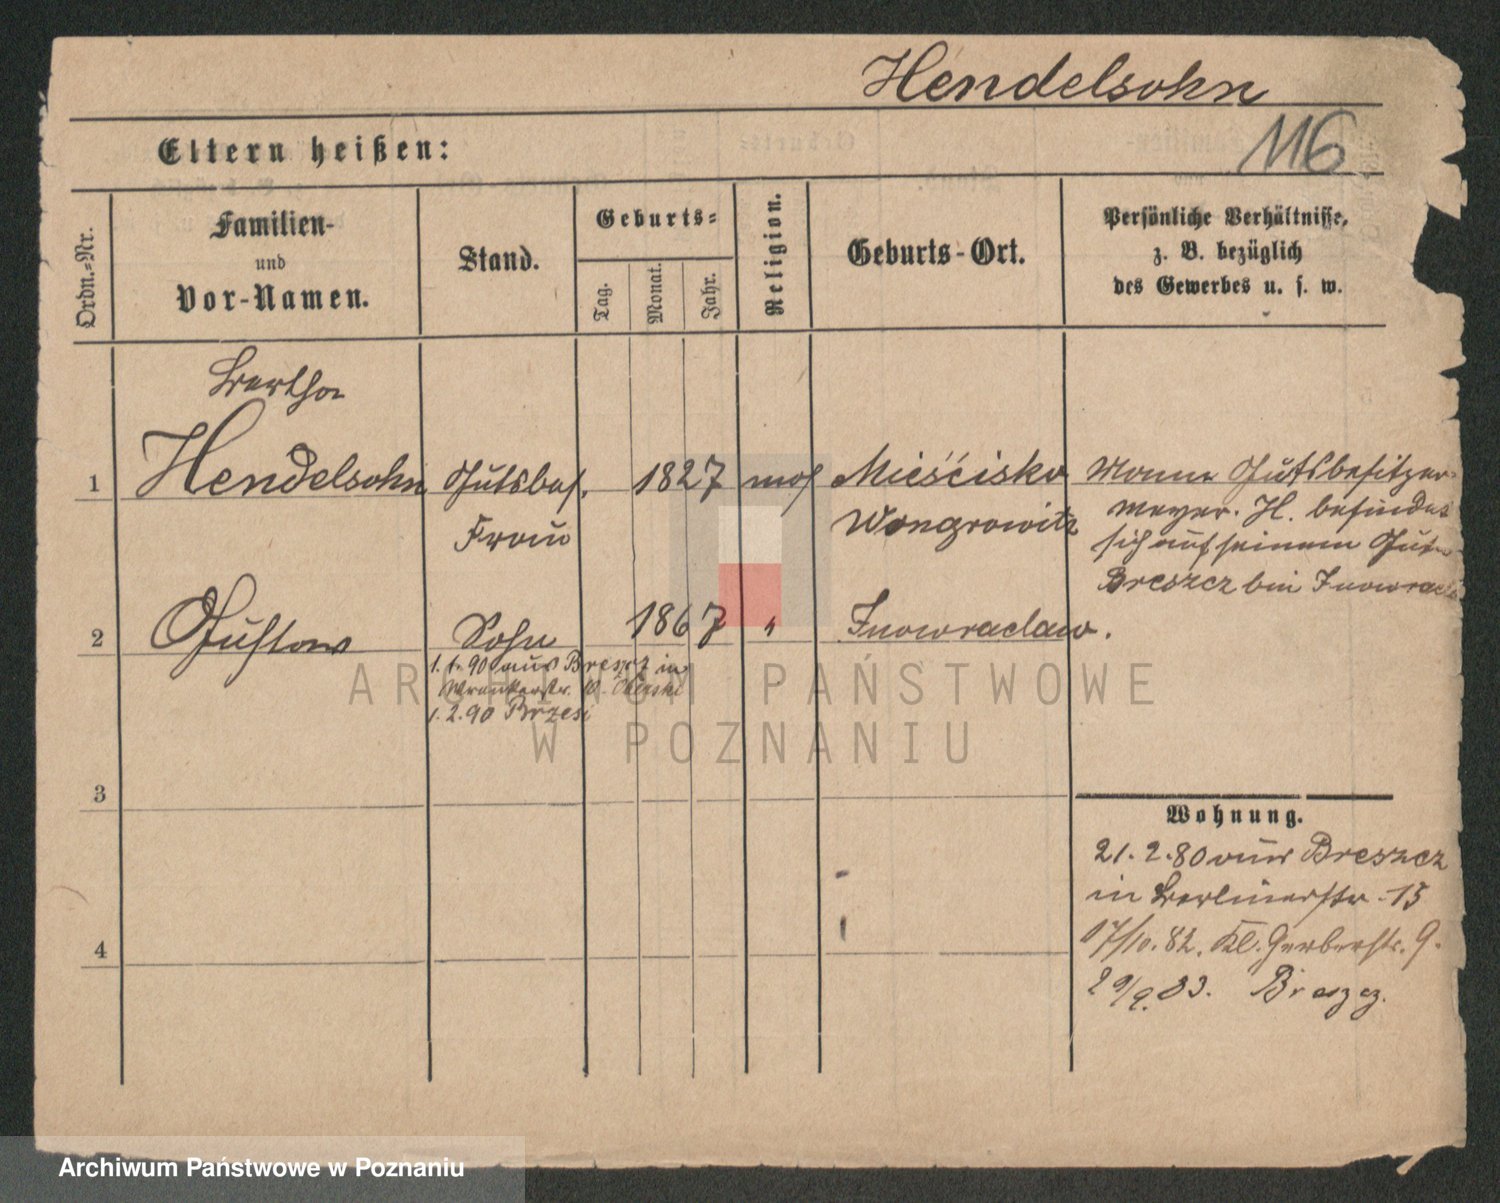 Hendelsohn
116
Eltern heißen:
Ordn.-Nr.
Familien-
und
Vor-Namen.
Stand.
Geburts-
Tag.
Monat.
Jahr.
Religion.
Geburts-Ort.
Persönliche Verhältnisse,
z. B. bezüglich
des Gewerbes u. s. w.
Bertha
1 Hendelsohn Gutsbes. 1827 mos Mieścisko
Frau
Wongrowitz
Mann Gutsbesitzer
Meyer. H. befindet
sich auf seinem Gute
Breszcz bei Inowracl
2 Gustav Sohn 1867 " Inowraclaw.
1. 1. 90 aus Breszz in
Wronkerstr. 10
1. 2. 90 Brzesc
3
4
Wohnung.
21. 2. 80 aus Breszcz
in Berlinerstr. 15
17/10. 82. Kl. Gerberstr. 9.
29/9. 83. Breszcz.
ARCHIWUM PAŃSTWOWE
W POZNANIU
Archiwum Państwowe w Poznaniu